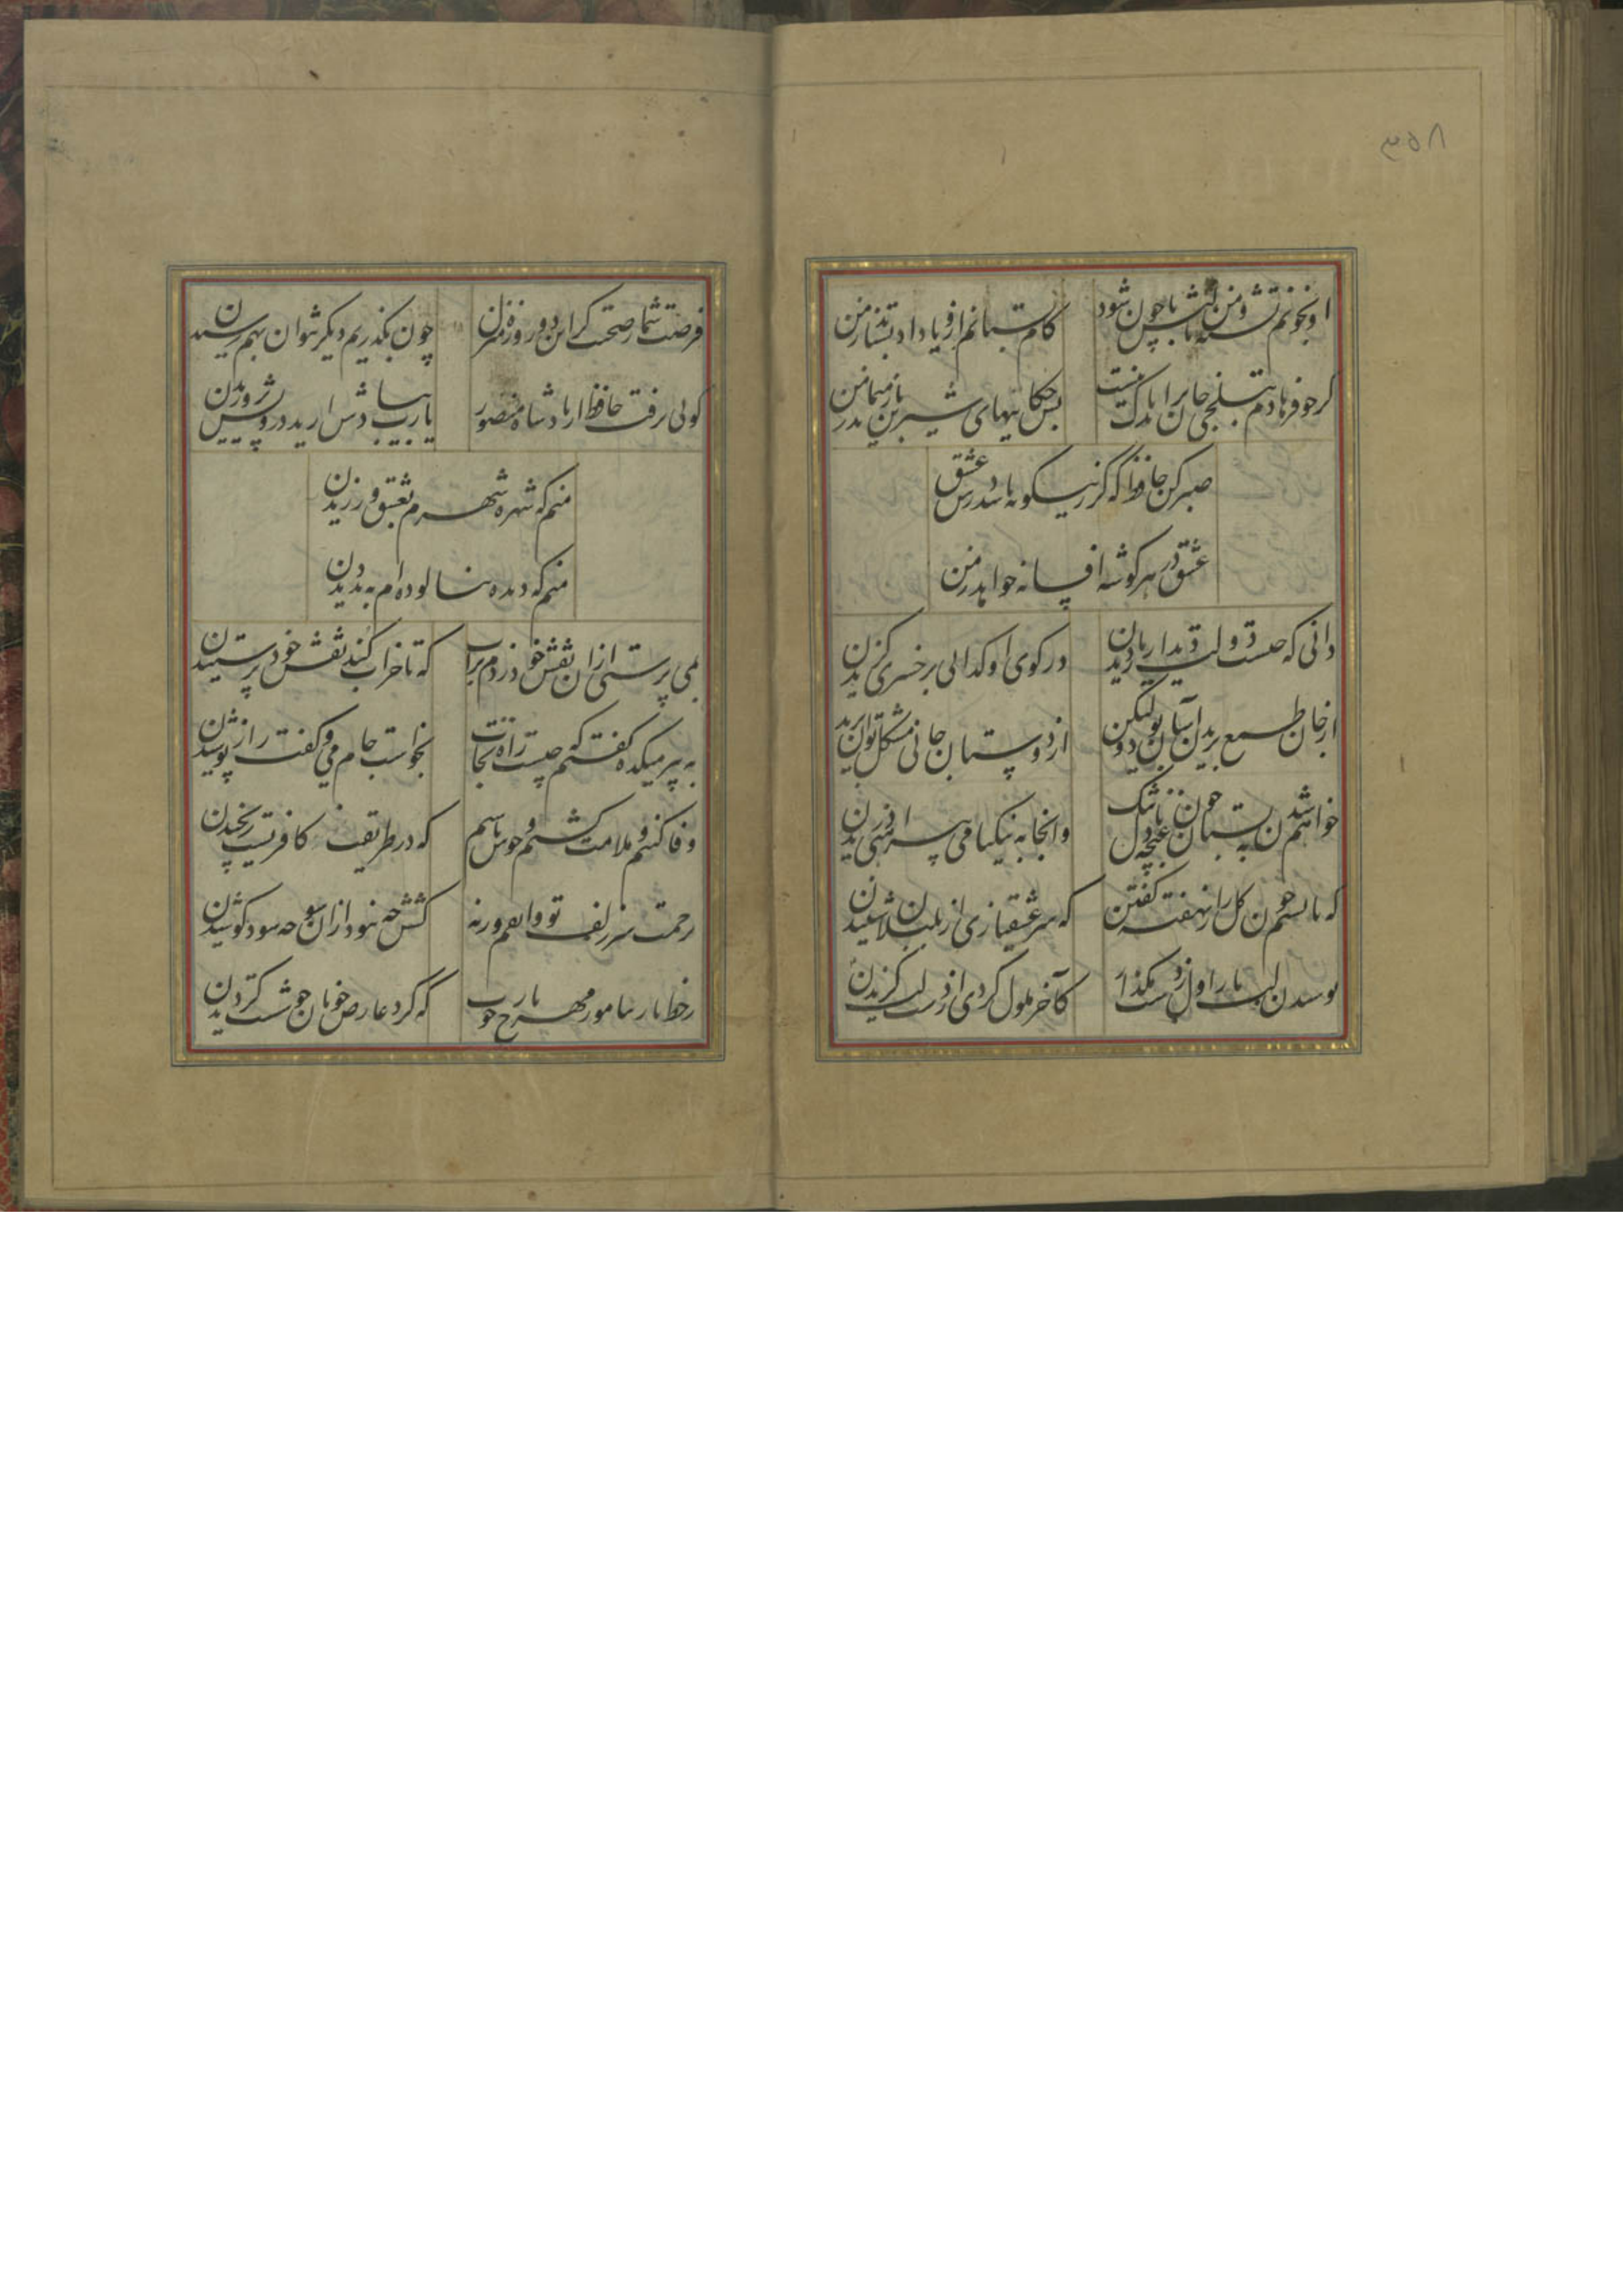 ۸۵۳
او بخونم تشنه و من بر لبش تا چون شود
کام بستانم ازو یا داد بستاند ز من
گر چو فرهادم بتلخی جان براید باک نیست
بس حکایتهای شیرین باز میماند ز من
صبر کن حافظ که گر زینگونه باشد درس عشق
عشق در هر گوشه افسانه خواند ز من
دانی که چیست دولت دیدار یار دیدن
در کوی او گدایی بر خسروی گزیدن
از جان طمع بریدن آسان بود ولیکن
از دوستان جانی مشکل توان بریدن
خواهم شدن به بستان چون غنچه با دل تنک
وانجا به نیکنامی پیراهنی دریدن
که با نسیم چون گل راز نهفته گفتن
که سر عشقبازی از بلبلان شنیدن
بوسیدن لب یار اول ز دست مگذار
کآخر ملول گردی از دست لب گزیدن
فرصت شمار صحبت کز این دو روزه منزل
چون بگذریم دیگر نتوان بهم رسیدن
گویی برفت حافظ از یاد شاه منصور
یارب بیادش آرید درویش پروریدن
منم که شهره شهرم بعشق ورزیدن
منم که دیده نیالوده‌ام به بد دیدن
بمی پرستی ازان نقش خود زدم بر آب
که تا خراب کنم نقش خود پرستیدن
به پیر میکده گفتم که چیست راه نجات
بخواست جام می و گفت راز پوشیدن
وفا کنیم و ملامت کشیم و خوش باشیم
که در طریقت کافریست رنجیدن
برحمت سر زلف تو واثقم ورنه
کشش چو نبود از آن سو چه سود کوشیدن
ز خط یار بیاموز مهر با رخ خوب
که گرد عارض خوبان خوشست گردیدن